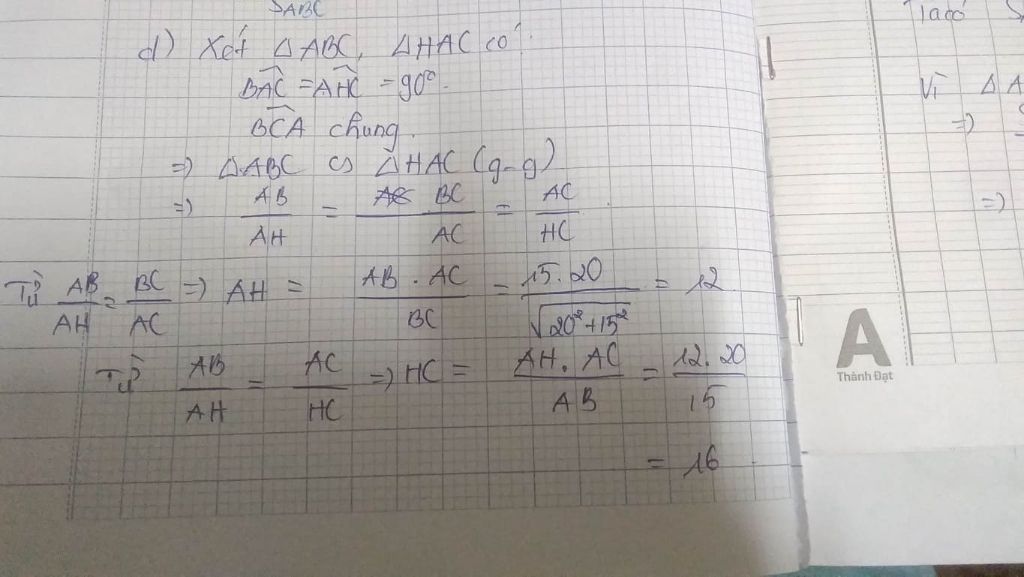 SABC
d) Xét △ABC, △HAC có:
BAC = AHC = 90°.
BCA chung.
=> △ABC ∽ △HAC (g-g)
=> AB/AH = BC/AC = AC/HC.
Từ AB/AH = BC/AC => AH = AB . AC/BC = 15.20/√20²+15² = 12
Từ AB/AH = AC/HC => HC = AH . AC/AB = 12.20/15
= 16
Vì △A
=>
=>
A
Thành Đạt